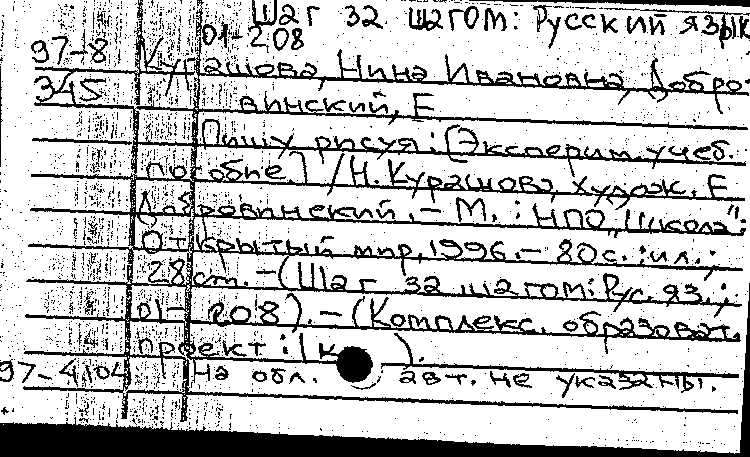 Шаг за шагом: Русский язык
01-208
97-8 Курашова, Нина Ивановна, Добро-
345 винский, Е
Пишу, рисуя: [Эксперим. учеб.
пособие.] / Н. Курашова, худож. Е.
Добровинский. – М.: НПО „Школа":
Открытый мир, 1996. – 80 с.: ил.;
28 см. – (Шаг за шагом: Рус. яз.;
01-208). – (Комплекс. образоват.
проект:
97-4104 На обл. авт. не указаны.